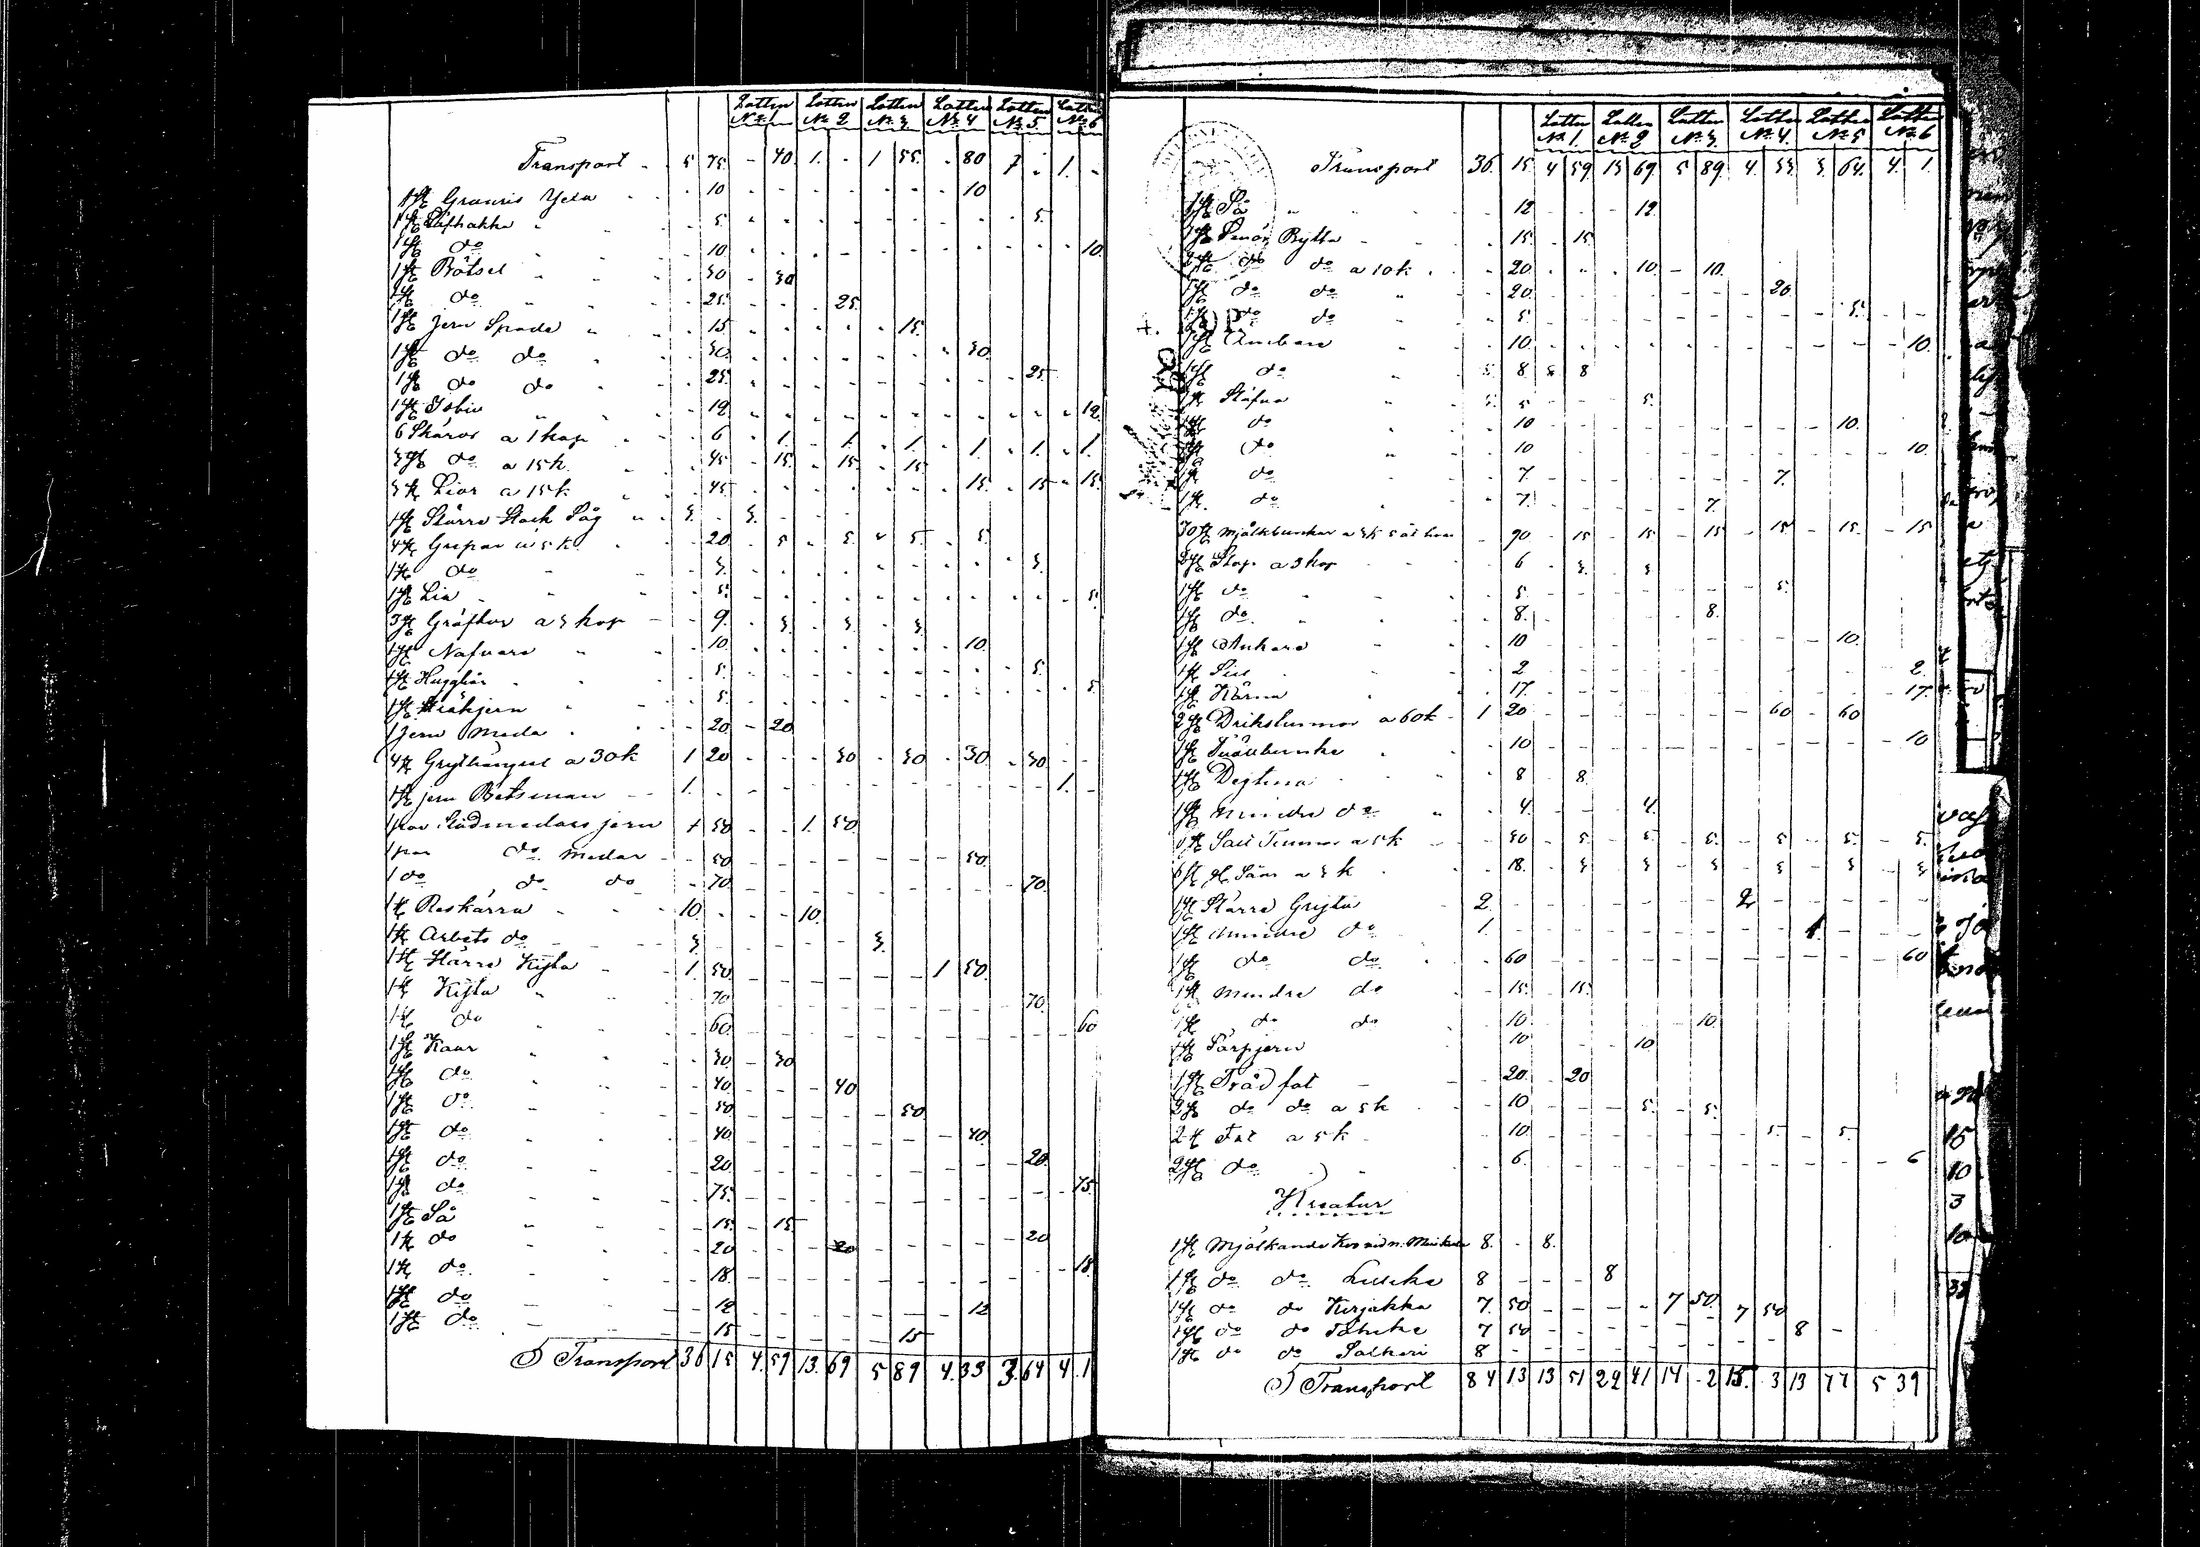 Lotten Lotten Lotten Lotten Lotten Lotten
No 1 No 2 No 3 No 4 No 5 No 6
Transport 5 75 - 40 1 - 1 55 - 80 1 - 1 -
1 st 10 10
1 st 5 5
1 st do 10 10
1 st Bötsel 30 30
1 st do 25 25
1 st jern Spade 15 15
1 st do do 30 30
1 st do do 25 25
1 st Isbil 12 12
6 Skäror a 1 kop 6 1 1 1 1 1 1
3 st do a 15 k 45 15 15 15
3 st Liar a 15 k 45 15 15 15
1 st Större Stock Såg 3 3
4 st Grepar a 5 k 20 5 5 5 5
1 st do 3 3
1 st Lia 5 5
3 st a 3 kop 9 3 3 3
1 st Nafvare 10 10
1 st 5 5
1 st 5
1 jern Meda 20 20
4 st Grythängsel a 30 k 1 20 30 30 30 30
1 st jern Betsman 1 1
1 par jern 1 50 1 50
1 par do medar 50 50
1 do do do 70 70
1 st Reskärra 10 10
1 st Arbets do 3 3
1 st Större Kijta 1 50 1 50
1 st Kijta 70 70
1 st do 60 60
1 st Kaar 30 30
1 st do 40 40
1 st do 50 50
1 st do 40 40
1 st do 20 20
1 st do 75 75
1 st Så 15 15
1 st do 20 20 20
1 st do 18 18
1 st do 12 12
1 st do 15 15
Transport 36 15 4 59 13 69 5 89 4 33 3 64 4 1
Lotten Lotten Lotten Lotten Lotten Lotten
No 1 No 2 No 3 No 4 No 5 No 6
Transport 36 15 4 59 13 69 5 89 4 33 3 64 4 1
1 st Så 12 12
1 st Smör Bytta 15 15
2 st do do a 10 k 20 10 10
1 st do do 20 20
1 st do do 5 5
1 st Ämbare 10 10
1 st do 8 8
1 st Stäfva 5 5
1 st do 10 10
1 st do 10 10
1 st do 7 7
1 st do 7 7
30 st Mjölkbunkar a 3 k 5 åt hvar 90 15 15 15 15 15 15
2 st Stop a 3 kop 6 3 3
1 st do 5 5
1 st do 8 8
1 st Ankare 10 10
1 st 2 2
1 st Kärna 17 17
2 st a 60 k 1 20 60 60
1 st 10 10
1 st Degtina 8 8
1 st mindre do 4 4
6 st a 5 k 30 5 5 5 5 5 5
6 st a 3 k 18 3 3 3 3 3 3
1 st Större Gryta 2 2
1 st mindre do 1 1
1 st do do 60 60
1 st mindre do 15 15
1 st do do 10 10
1 st 10 10
1 st Träd fat 20 20
2 st do do a 5 k 10 5 5
2 st Fat a 5 k 10 5 5
2 st do 6 6
Kreatur
1 st Mjölkande Ko vid n. 8 8
1 st do do 8 8
1 st do do Kirjakka 7 50 7 50
1 st do do 7 50 7 50
1 st do do 8 8
Transport 84 13 13 51 22 41 14 2 15 3 13 77 5 39
15
10
3
10